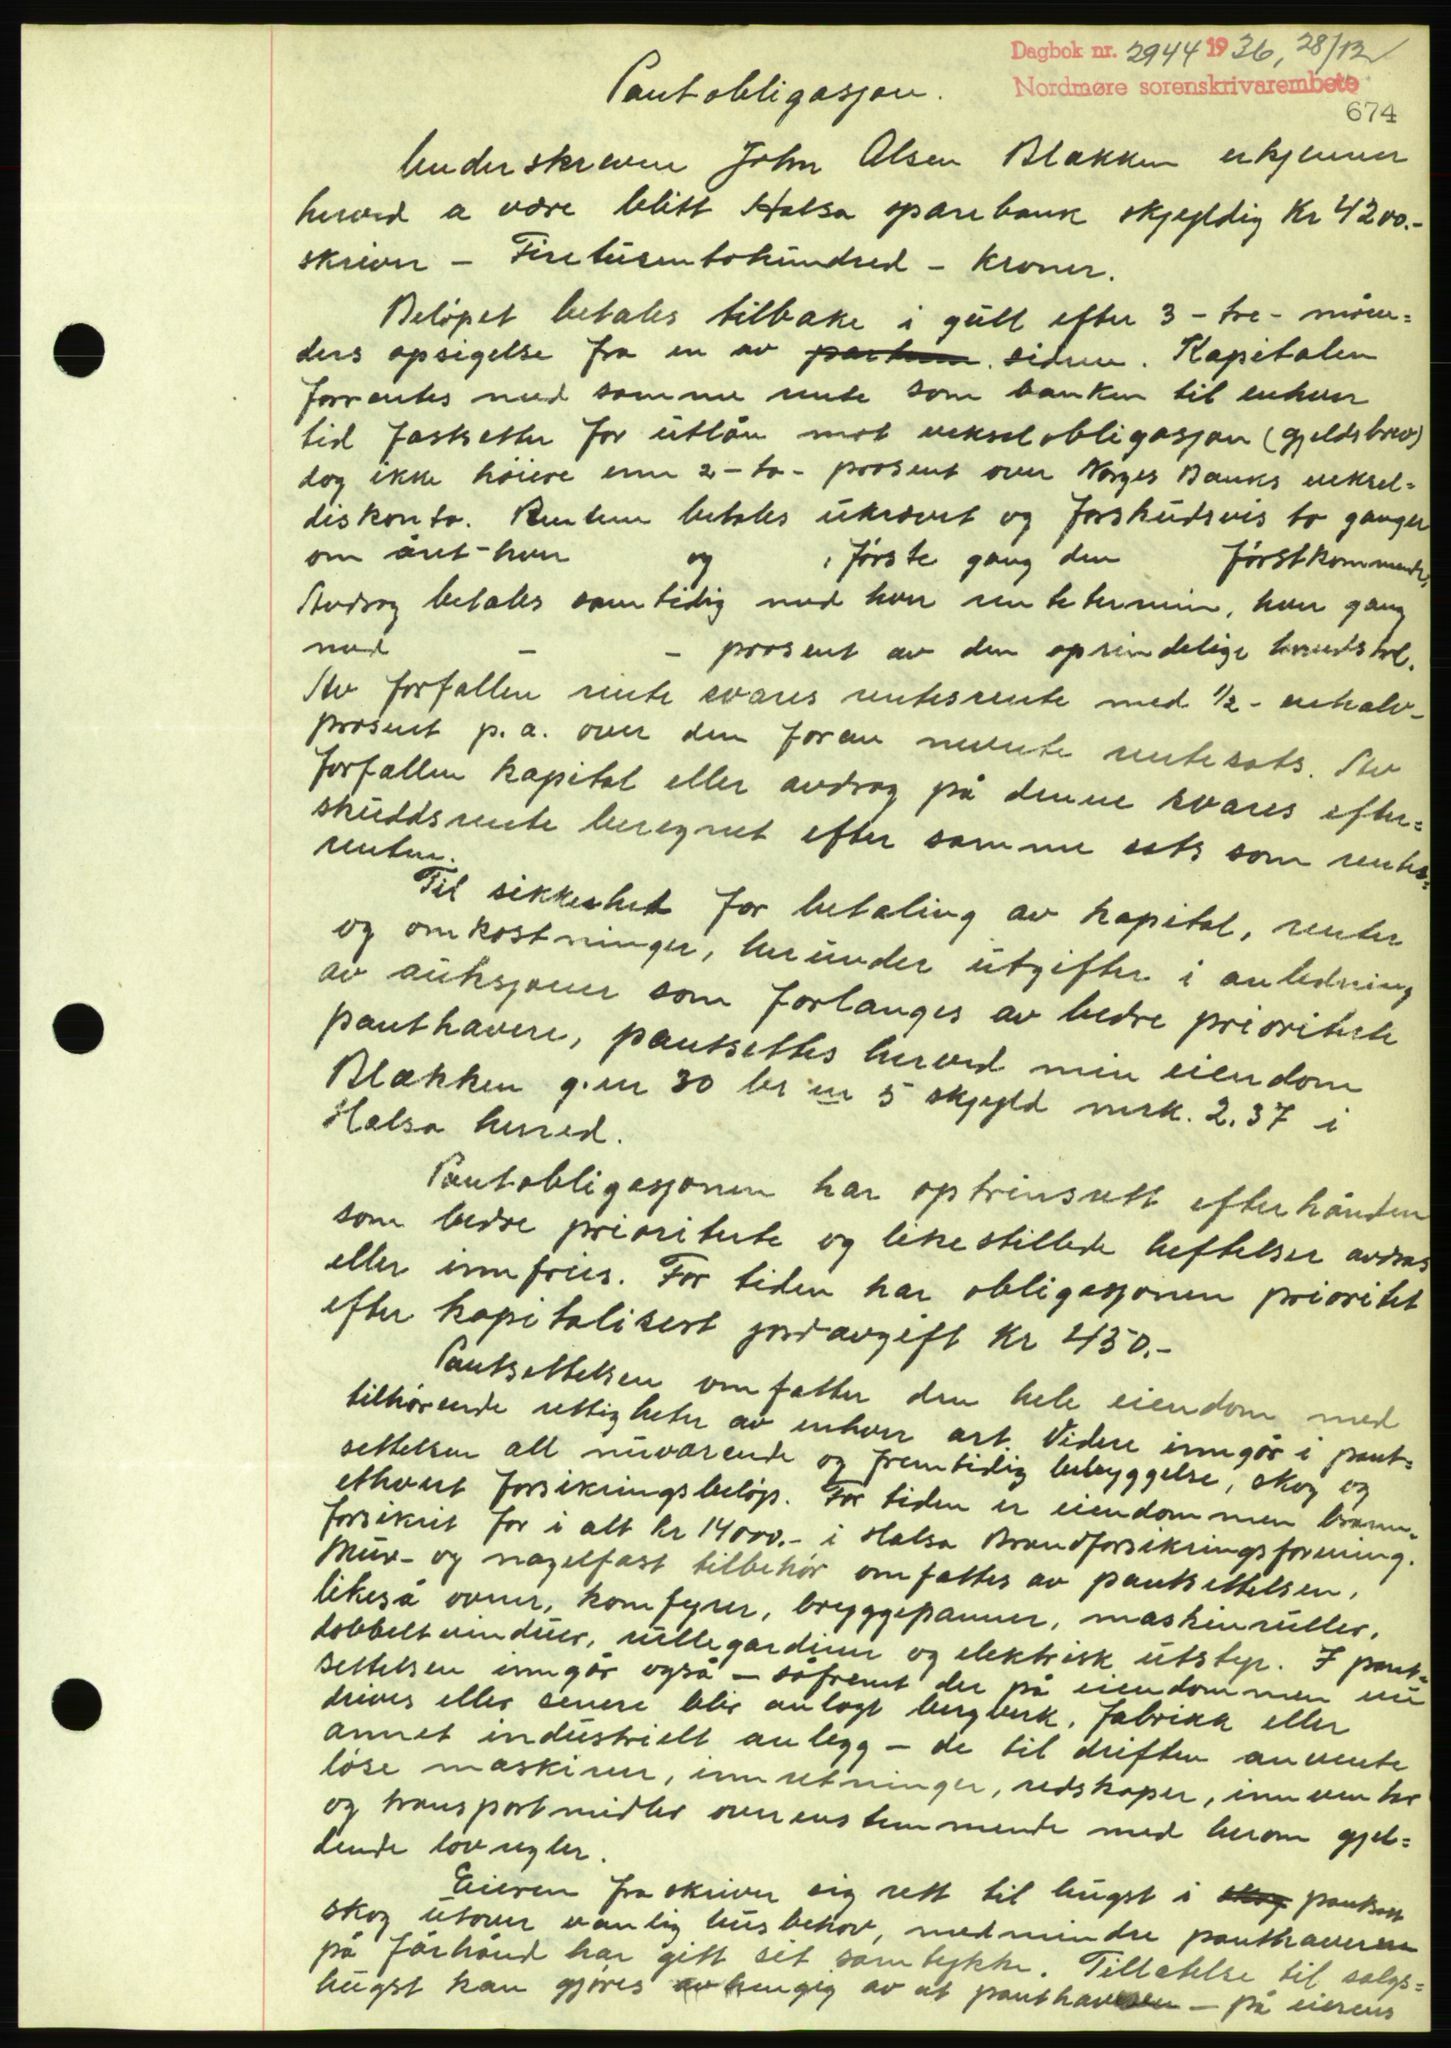 Dagbok nr. 2944 1936, 28/12
Nordmøre sorenskrivarembete
674
Pantobligasjon.
Underskreven John Olsen Blækken erkjenner
herved a være blitt Halsa sparebank skjyldig Kr 4200.-
skriver - Firetusentohundred - Kroner.
Beløpet betales tilbake i gull efter 3 - tre - måne=
ders opsigelse fra en av partene sidene. Kapitalen
forrentes med samme rente som banken til enhver
tid fastsetter for utlån mot vekselobligasjon (gjeldsbrev)
dog ikke høiere enn 2 - to - prosent over Norges Banks veksel=
diskonto. Rentene betales ukrævet og forskudsvis to ganger
om året - hver og , første gang den førstkommende,
Avdrag betales samtidig med hver rentetermin, hver gang
med - - prosent av den oprindelige hovedstol.
Av forfallen rente svares rentesrente med 1/2 - enhalv -
prosent p. a. over den foran nevnte rentesats. Av
forfallen kapital eller avdrag på denne svares efter=
skuddsrente beregnet efter samme sats som rentes=
renten.
Til sikkerhet for betaling av kapital, renter
og omkostninger, herunder utgifter i anledning
av auksjoner som forlanges av bedre prioriterte
panthavere, pantsettes herved min eiendom
Blækken g. nr 30 br nr 5 skjyld mrk. 2.37 i
Halsa herred.
Pantobligasjonen har optrinsrett efterhånden
som bedre prioriterte og likestillede heftelser avdras
eller innfries. For tiden har obligasjonen prioritet
efter kapitalisert jordavgift Kr 450.-
Pantsettelsen omfatter den hele eiendom med
tilhørende rettigheter av enhver art. Videre inngår i pant=
settelsen all nuværende og fremtidig bebyggelse, skog og
ethvert forsikringsbeløp. For tiden er eiendommen brann=
forsikret for i alt kr 14000.- i Halsa Brandforsikringsforening.
Mur- og nagelfast tilbehør omfattes av pantsettelsen,
likeså ovner, komfyrer, bryggepanner, maskinruller,
dobbeltvinduer, rullegardiner og elektrisk utstyr. I pant=
settelsen inngår også - såfremt der på eiendommen nu
drives eller senere blir anlagt bergverk, fabrikk eller
annet industrielt anlegg - de til driften anvente
løse maskiner, innretninger, redskaper, inventar
og transportmidler overensstemmende med herom gjel=
dende lovregler.
Eieren fraskriver sig rett til hugst i skog pantsatt
skog utover vanlig husbehov, medmindre panthaveren
på forhånd har gitt sit samtykke. Tillatelse til salgs=
hugst kan gjøres avhengig av at panthaveren - på eierens